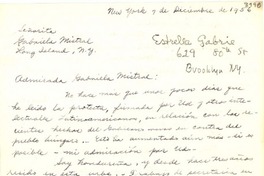 New York 7 de Diciembre de 1956
Señorita
Gabriela Mistral
Long Island, N.Y.
Estrella Gabrie
629 80th St
Brooklyn N.Y.
Admirada Gabriela Mistral:
No hace mas que unos pocos días que
he leído la protesta, firmada por Ud y otros inte-
lectuales Latinoamericanos, en relación con los re-
cientes hechos del Gobierno ruso en contra del
pueblo húngaro. Esto ha aumentado aún mas - si es
posible - mi admiración por Ud.
Soy hondureña, y desde hace años
resido en esta urbe. Trabajo de secretaria en